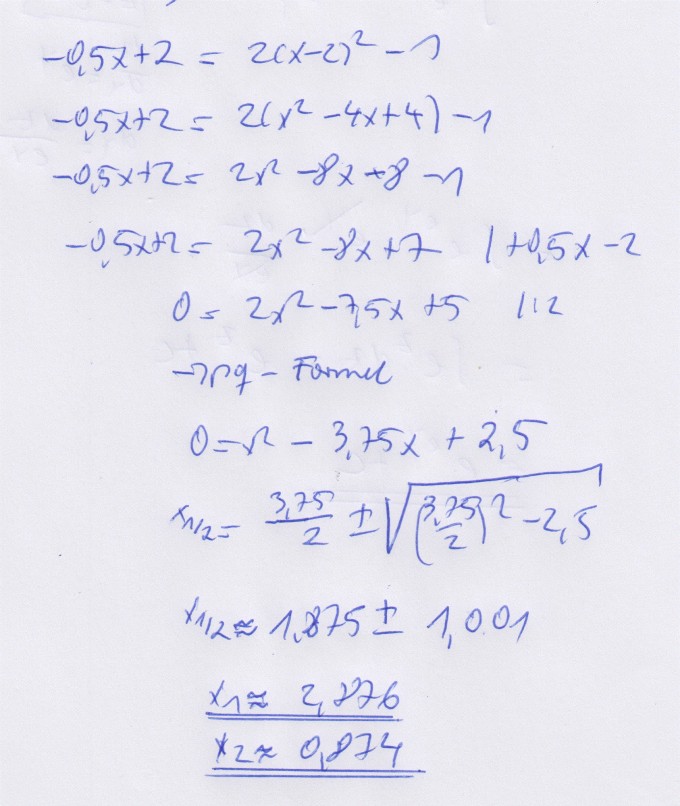 -0,5x+2 = 2(x-2)² - 1
-0,5x+2 = 2(x² - 4x+4) - 1
-0,5x+2 = 2x² - 8x + 8 - 1
-0,5x+2 = 2x² - 8x + 7 | +0,5x - 2
0 = 2x² - 7,5x + 5 | :2
→ pq - Formel
0 = x² - 3,75x + 2,5
x1/2 = 3,75/2 ± √((3,75/2)² - 2,5)
x1/2 ≈ 1,875 ± 1,001
x1 ≈ 2,876
x2 ≈ 0,874